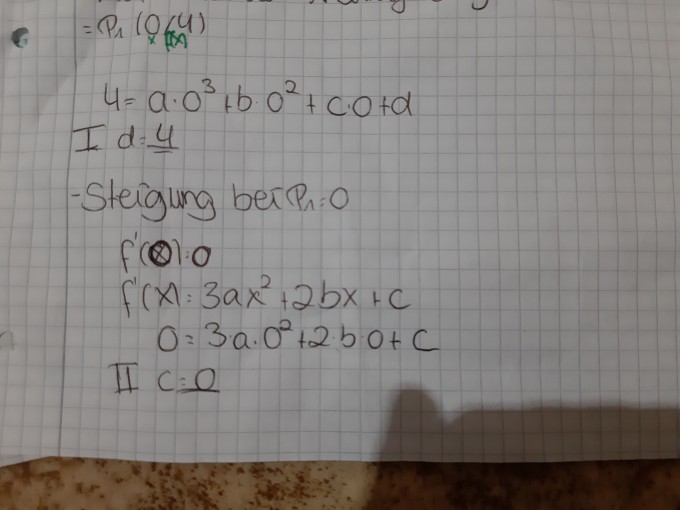 = P₁ (0/4)
x f(x)
4 = a·0³ + b·0² + c·0 + d
I d = 4
- Steigung bei P₁ = 0
f'(0) = 0
f'(x) = 3ax² + 2bx + c
0 = 3a·0² + 2·b·0 + c
II c = 0